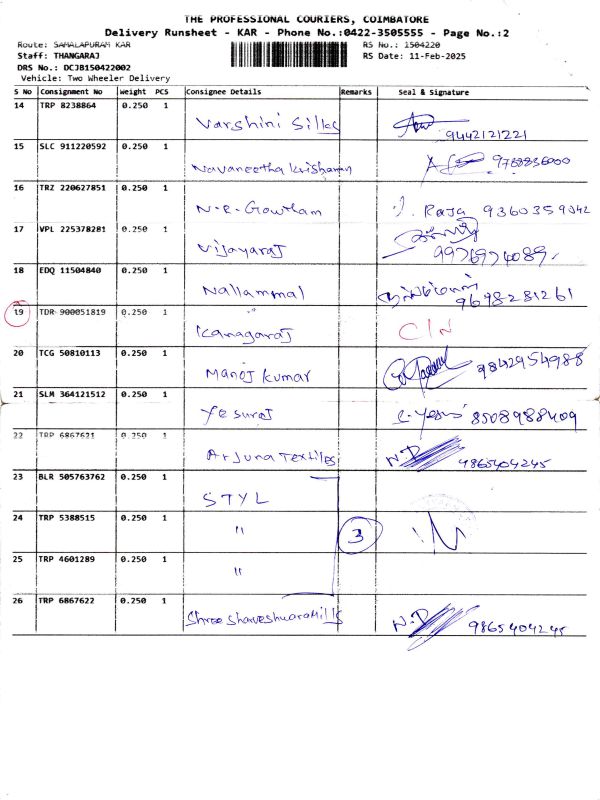 THE PROFESSIONAL COURIERS, COIMBATORE
Delivery Runsheet - KAR - Phone No.:0422-3505555 - Page No.:2
Route: SAMALAPURAM KAR
RS No.: 1504220
Staff: THANGARAJ
RS Date: 11-Feb-2025
DRS No.: DCJB150422002
Vehicle: Two Wheeler Delivery
S No Consignment No Weight PCS Consignee Details Remarks Seal & Signature
14 TRP 8238864 0.250 1
Varshini Silks 9442121221
15 SLC 911220592 0.250 1
Navaneetha Krishanan
16 TRZ 220627851 0.250 1
N-R-Gowtam Raja 9360359042
17 VPL 225378281 0.250 1
Vijayaraj 9976974089
18 EDQ 11504840 0.250 1
Nallammal 9698281261
19 TDR 900051819 0.250 1
Kanagaraj C/N
20 TCG 50810113 0.250 1
Manoj Kumar 9842954988
21 SLM 364121512 0.250 1
Yesuraj 8508988409
22 TRP 6867621 0.250 1
Arjuna Textiles 9865404245
23 BLR 505763762 0.250 1
STYL
24 TRP 5388515 0.250 1
" 3
25 TRP 4601289 0.250 1
"
26 TRP 6867622 0.250 1
Shree Shaveshwara Mills 9865404245